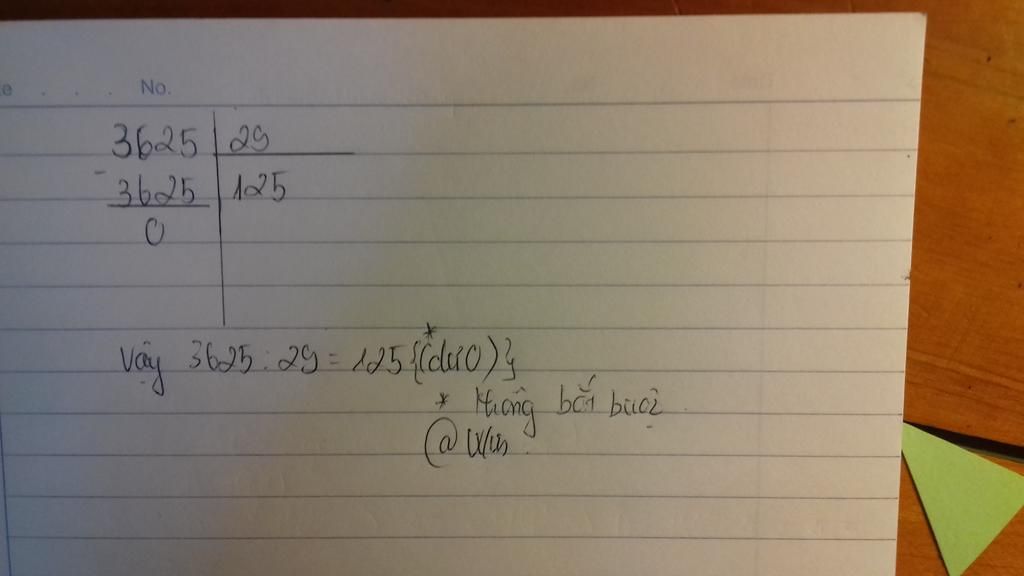 No.
3625 | 29
- 3625 | 125
0
Vậy 3625 : 29 = 125 {(dư 0)}
* Không bắt buộc